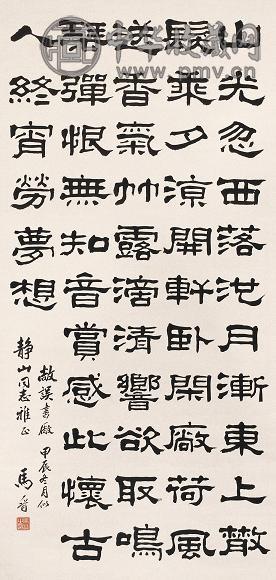 中华收藏网
www.pmv.cn
山光忽西落池月漸東上散
髮乘夕涼開軒臥閑廠荷風
送香氣竹露滴清響欲取鳴
琴彈恨無知音賞感此懷古
人終宵勞夢想
敞誤書廠 甲辰冬月似
静山同志雅正
馬晉